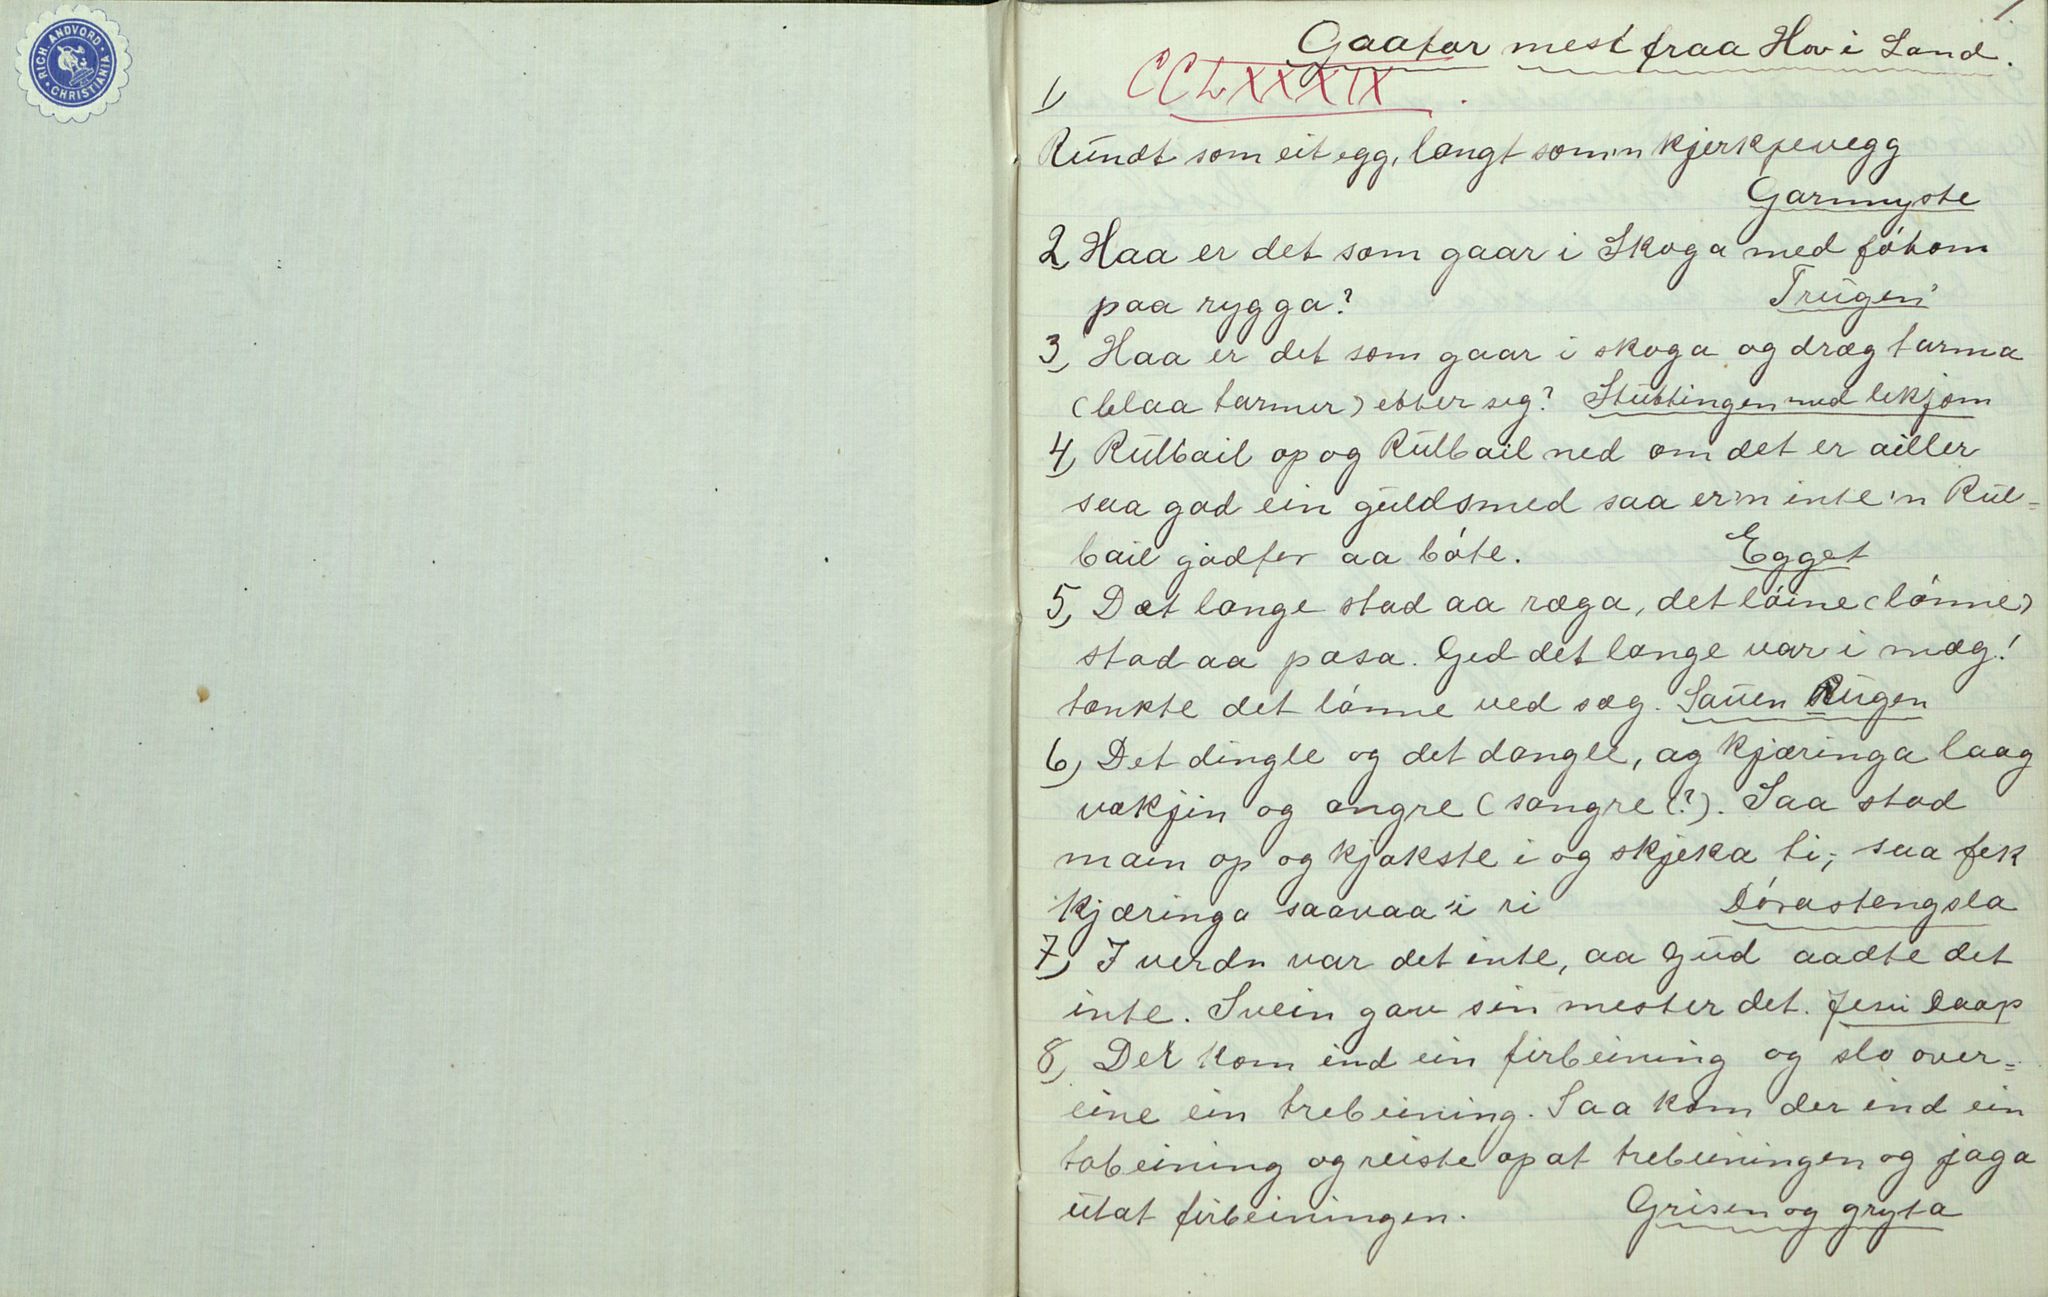 RICH. ANDVORD
CHRISTIANIA
1
Gaator mest fraa Hov i Land.
CCLXXXIX.
1)
Rundt som eit egg, langt som'n kjerkjevegg
Garnnyste
2) Haa er det som gaar i Skoga med fótom
paa rygga? Trugen'
3) Haa er det som gaar i skoga og dræg tarma
(blaa tarmer) etter seg? Stuttingen med lekjom
4) Rulbail op og Rulbail ned om det er ailler
saa god ein guldsmed saa er'n inte'n Rul=
bail godfer aa bóte. Egget
5) Dæt lange stod aa ræga, det lóine (lónne)
stod aa pasa. Ged det lange var i mæg!
tænkte det lónne ved sæg. Sauen Rugen
6) Det dingle og det dangle, og kjæringa laag
vakjin og angre (sangre (?). Saa stod
main op og kjakste i og skjeka ti; saa fek
kjæringa saavaa'i ri Dórastengsla
7) I verdn var det inte, aa Gud aadte det
inte. Svein gav sin mester det. Jesu Daap
8) Der kom ind ein firbeining og slo over=
eine ein trebeining. Saa kom der ind ein
tobeining og reiste op at trebeiningen og jaga
utat firbeiningen. Grisen og gryta